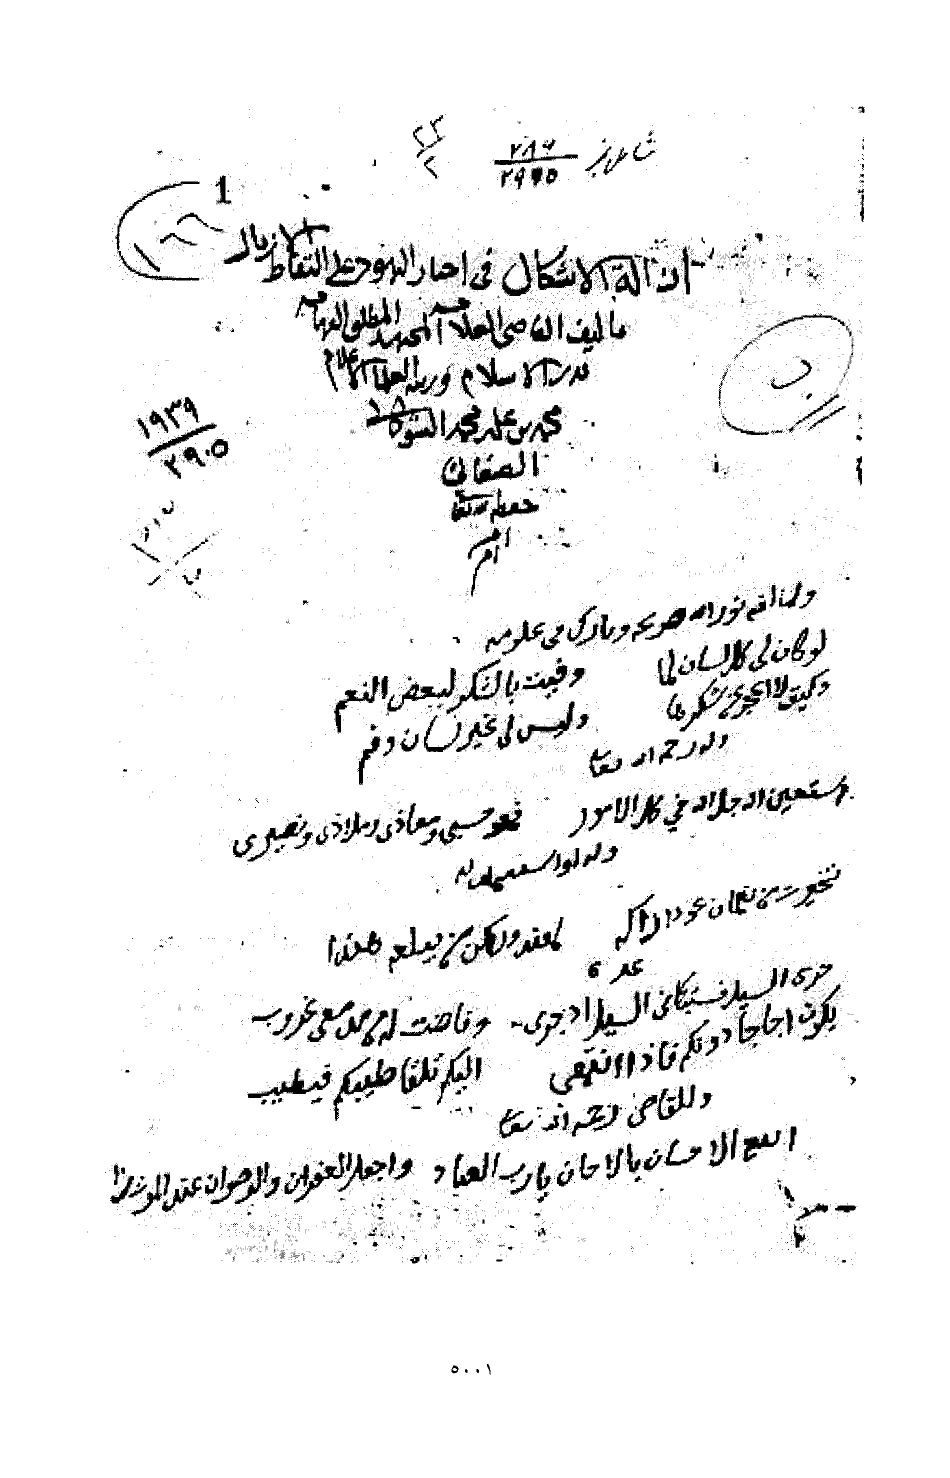 ٢٨٩
٢٩٤٥
٢٣
٢
1
الأزبال
إزالة الاشكال في اجبار اليهود على التقاط
تاليف القاضي العلامة المجتهد المطلق الفهامة
بدر الاسلام وزينة العلماء الاعلام
محمد بن علي محمد الشوكاني
الصنعاني
حفظه الله تعالى
١٩٣٩
٢٩٠٥
ولمؤلفه نور الله ضريحه وبارك في علومه
لو كان لي كل لسان لما وفيت بالشكر لبعض النعم
وكيف لا اعجز عن شكرها وليس لي غير لسان وفم
وله رحمه الله تعالى
استعين الله جل الله في كل الامور فهو حسبي ومعاذي وملاذي ونصيري
تخيرت من نعمان عود اراكة لهند ولكن من يبلغه هندا
غيره
جرى السيل فاستبكاني السيل اذ جرى وفاضت له من مدمعي غروب
يكون اجاجا دونكم فاذا انتهى اليكم تلقا طيبكم فيطيب
وللقاضي رحمه الله تعالى
اتبع الاحسان بالاحسان يا رب العباد واجعل الغفران والرضوان عقد
٥٠٠١